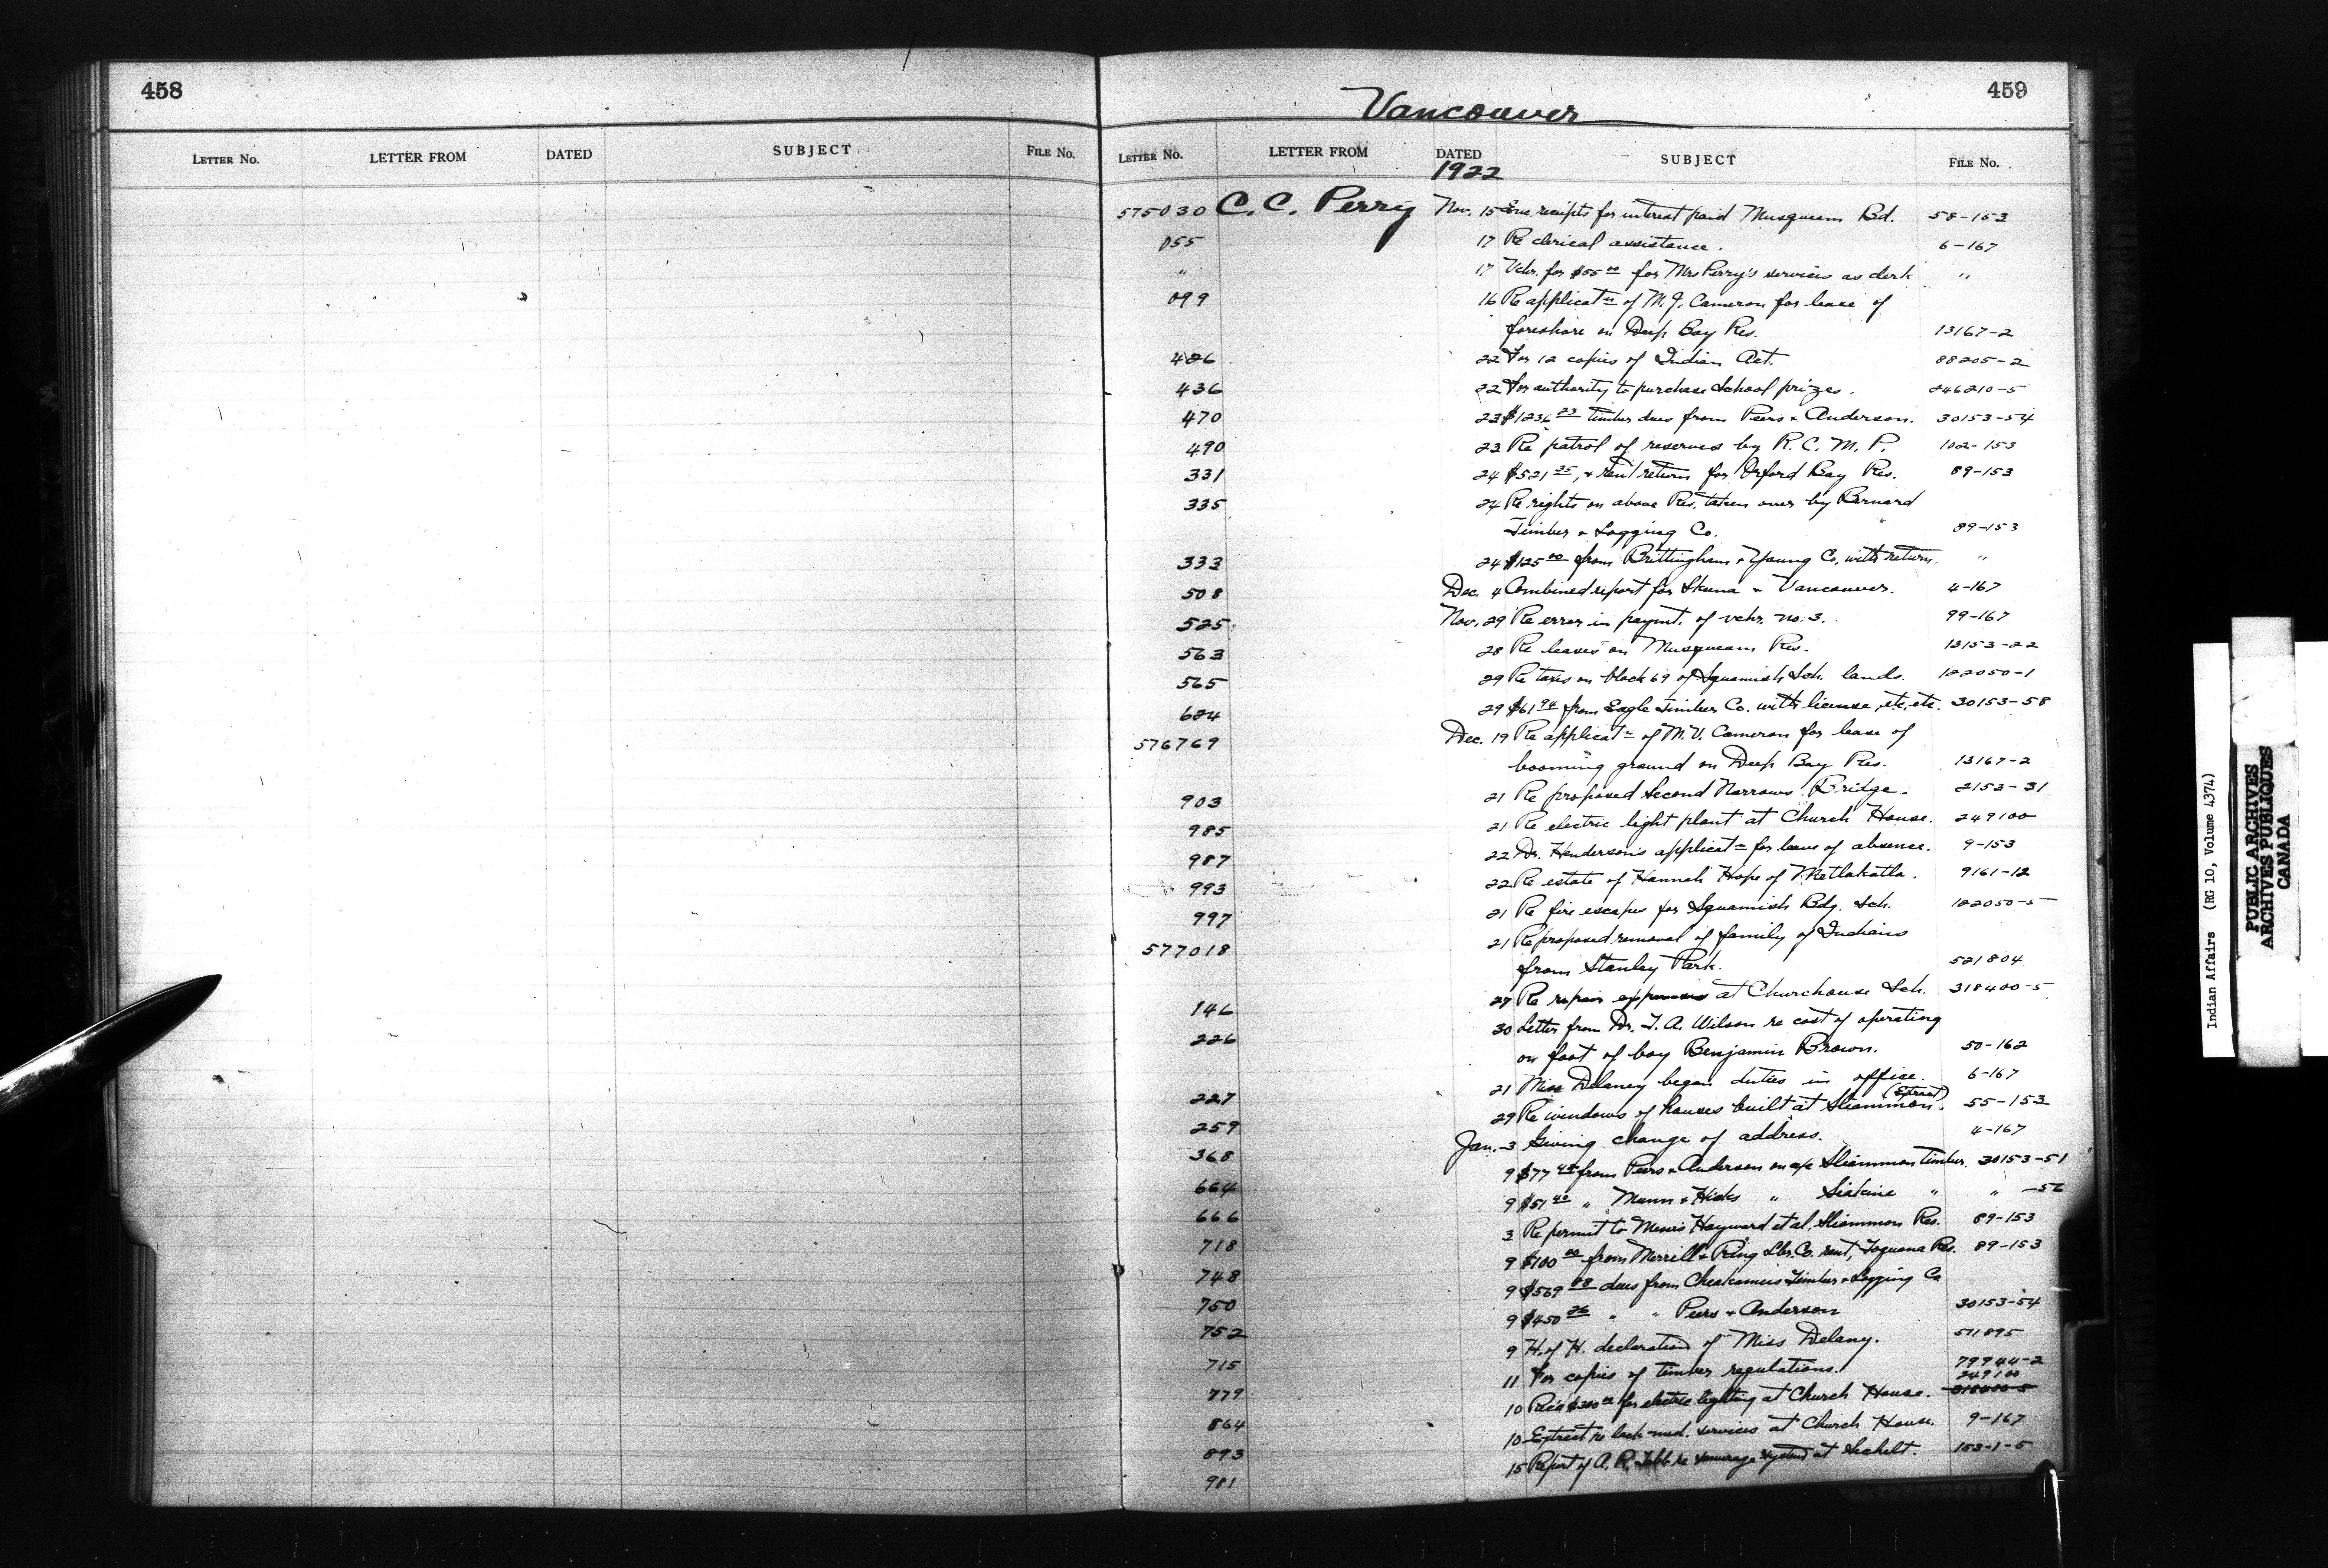 458
LETTER NO. LETTER FROM DATED SUBJECT FILE NO.
Vancouver
459
LETTER NO. LETTER FROM DATED SUBJECT FILE NO.
1922
575030 C. C. Perry Nov. 15 Enc. receipts for interest paid Musqueam Bd. 58-153
055 17 Re clerical assistance. 6-167
" 17 Vchr. for $55 00 for Mrs Perry's services as clerk "
099 16 Re applicatn of M. J. Cameron for lease of
foreshore on Deep Bay Res. 13167-2
426 22 For 12 copies of Indian Act. 88205-2
436 22 For authority to purchase School prizes. 246210-5
470 23 $1236 23 timber dues from Peers & Anderson. 30153-54
490 23 Re patrol of reserves by R. C. M. P. 102-153
331 24 $521 25, & rent return for Orford Bay Res. 89-153
335 24 Re rights on above Res. taken over by Bernard
Timber & Logging Co. 89-153
333 24 $125 00 from Brittingham & Young Co. with return. "
508 Dec. 4 Combined report for Skeena & Vancouver. 4-167
525 Nov. 29 Re error in paymt. of vchr. no. 3. 99-167
563 28 Re leases on Musqueam Res. 13153-22
565 29 Re taxes on block 69 of Squamish Sch. lands. 122050-1
624 29 $61 94 from Eagle Timber Co. with license, etc, etc. 30153-58
576769 Dec. 19 Re applicatn of M. V. Cameron for lease of
booming ground on Deep Bay Res. 13167-2
903 21 Re proposed Second Narrows Bridge. 2153-31
985 21 Re electric light plant at Church House. 249100
987 22 Dr. Henderson's applicatn for leave of absence. 9-153
993 22 Re estate of Hannah Hope of Metlakatla. 9161-12
997 21 Re fire escapes for Squamish Bdg. Sch. 122050-5
577018 21 Re proposed removal of family of Indians
from Stanley Park. 521804
146 27 Re repair expenses at Churchouse Sch. 318400-5
226 30 Letter from Dr. T. A. Wilson re cost of operating
on foot of boy Benjamin Brown. 50-162
227 21 Miss Delaney began duties in office. 6-167
259 29 Re windows of houses built at Sliammon. (Extract) 55-153
368 Jan. 3 Giving change of address. 4-167
664 9 $77 45 from Peers & Anderson on a/c Sliammon timber. 30153-51
666 9 $51 40 " Munn & Hicks " " " -56
718 3 Re permit to Messrs Hayward et al, Sliammon Res. 89-153
748 9 $100 00 from Merrill & Ring Lbr. Co. rent, Res. 89-153
750 9 $569 88 dues from Cheakamus Timber & Logging Co
752 9 $450 26 " " Peers & Anderson 30153-54
715 9 H. of H. declaration of Miss Delany. 511895
779 11 For copies of timber regulations. 79944-2
249100
864 10 Rec'd $300 00 for electric lighting at Church House. 318400-5
893 10 Extract re lack med. services at Church House. 9-167
981 15 Report of A. R. re sewerage system at Sechelt. 153-1-5
Indian Affairs (RG 10, Volume 4374)
PUBLIC ARCHIVES
ARCHIVES PUBLIQUES
CANADA